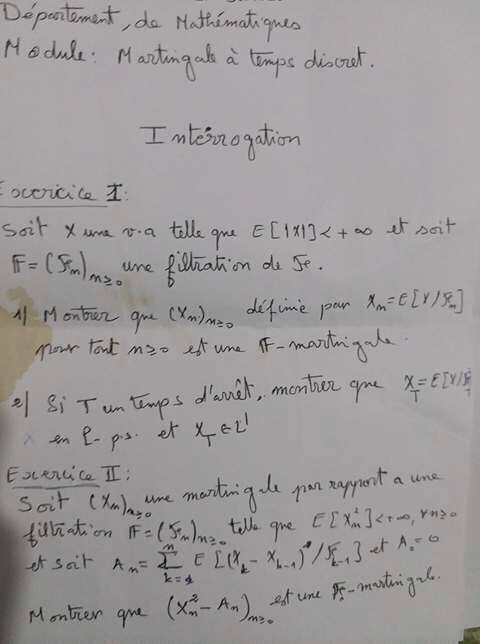 Département, de Mathématiques
Module: Martingale à temps discret.
Interrogation
Exercice I:
Soit X une v.a telle que E[|X|] < +∞ et soit
F = (Fₙ)ₙ≥₀ une filtration de F.
1) Montrer que (Xₙ)ₙ≥₀ définie par Xₙ = E[X/Fₙ]
pour tout n≥0 est une F-martingale.
2) Si T un temps d'arrêt, montrer que X_T = E[X/F_T
P-p.s. et X_T ∈ L¹
Exercice II:
Soit (Xₙ)ₙ≥₀ une martingale par rapport a une
filtration F = (Fₙ)ₙ≥₀ telle que E[Xₙ²] < +∞, ∀n≥0
et soit Aₙ = Σⁿₖ₌₁ E[(Xₖ - Xₖ₋₁)²/Fₖ₋₁] et A₀ = 0
Montrer que (Xₙ² - Aₙ)ₙ≥₀ est une F-martingale.